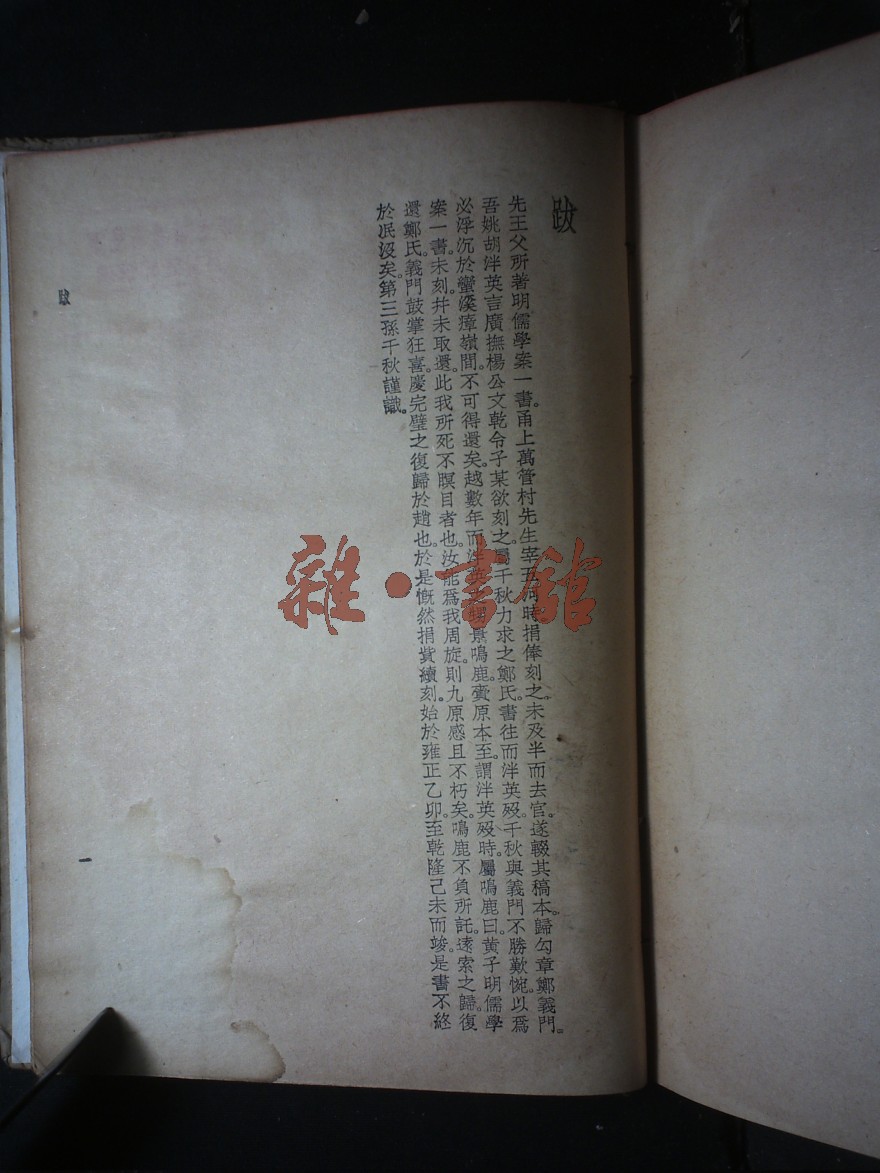 跋
先王父所著明儒學案一書。甬上萬管村先生宰五河時捐俸刻之。未及半而去官。遂輟其稿本。歸勾章鄭義門。
吾姚胡泮英言廣撫楊公文乾令子某欲刻之。屬千秋力求之鄭氏。書往而泮英歿。千秋與義門不勝歎惋。以爲
必浮沉於蠻溪瘴嶺間。不可得還矣。越數年而泮英之甥景鳴鹿賷原本至。謂泮英歿時。屬鳴鹿曰。黄子明儒學
案一書。未刻。幷未取還。此我所死不瞑目者也。汝能爲我周旋。則九原感且不朽矣。鳴鹿不負所託。遠索之歸。復
還鄭氏。義門鼓掌狂喜。慶完璧之復歸於趙也。於是慨然捐貲續刻。始於雍正乙卯。至乾隆己未而竣。是書不終
於泯沒矣。第三孫千秋謹識。
跋
一
雜·書館